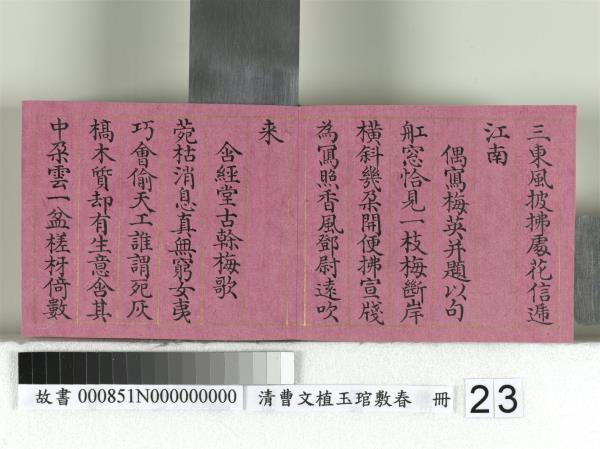 三東風披拂處花信遞
江南
偶寫梅英并題以句
舡窓恰見一枝梅斷岸
橫斜幾朶開便拂宣牋
為寫照香風鄧尉遠吹
来
含經堂古榦梅歌
菀枯消息真無窮女夷
巧會偷天工誰謂死灰
槁木質却有生意含其
中朶雲一盆槎枒倚數
故書 000851N000000000 清曹文植玉琯敷春 冊 23